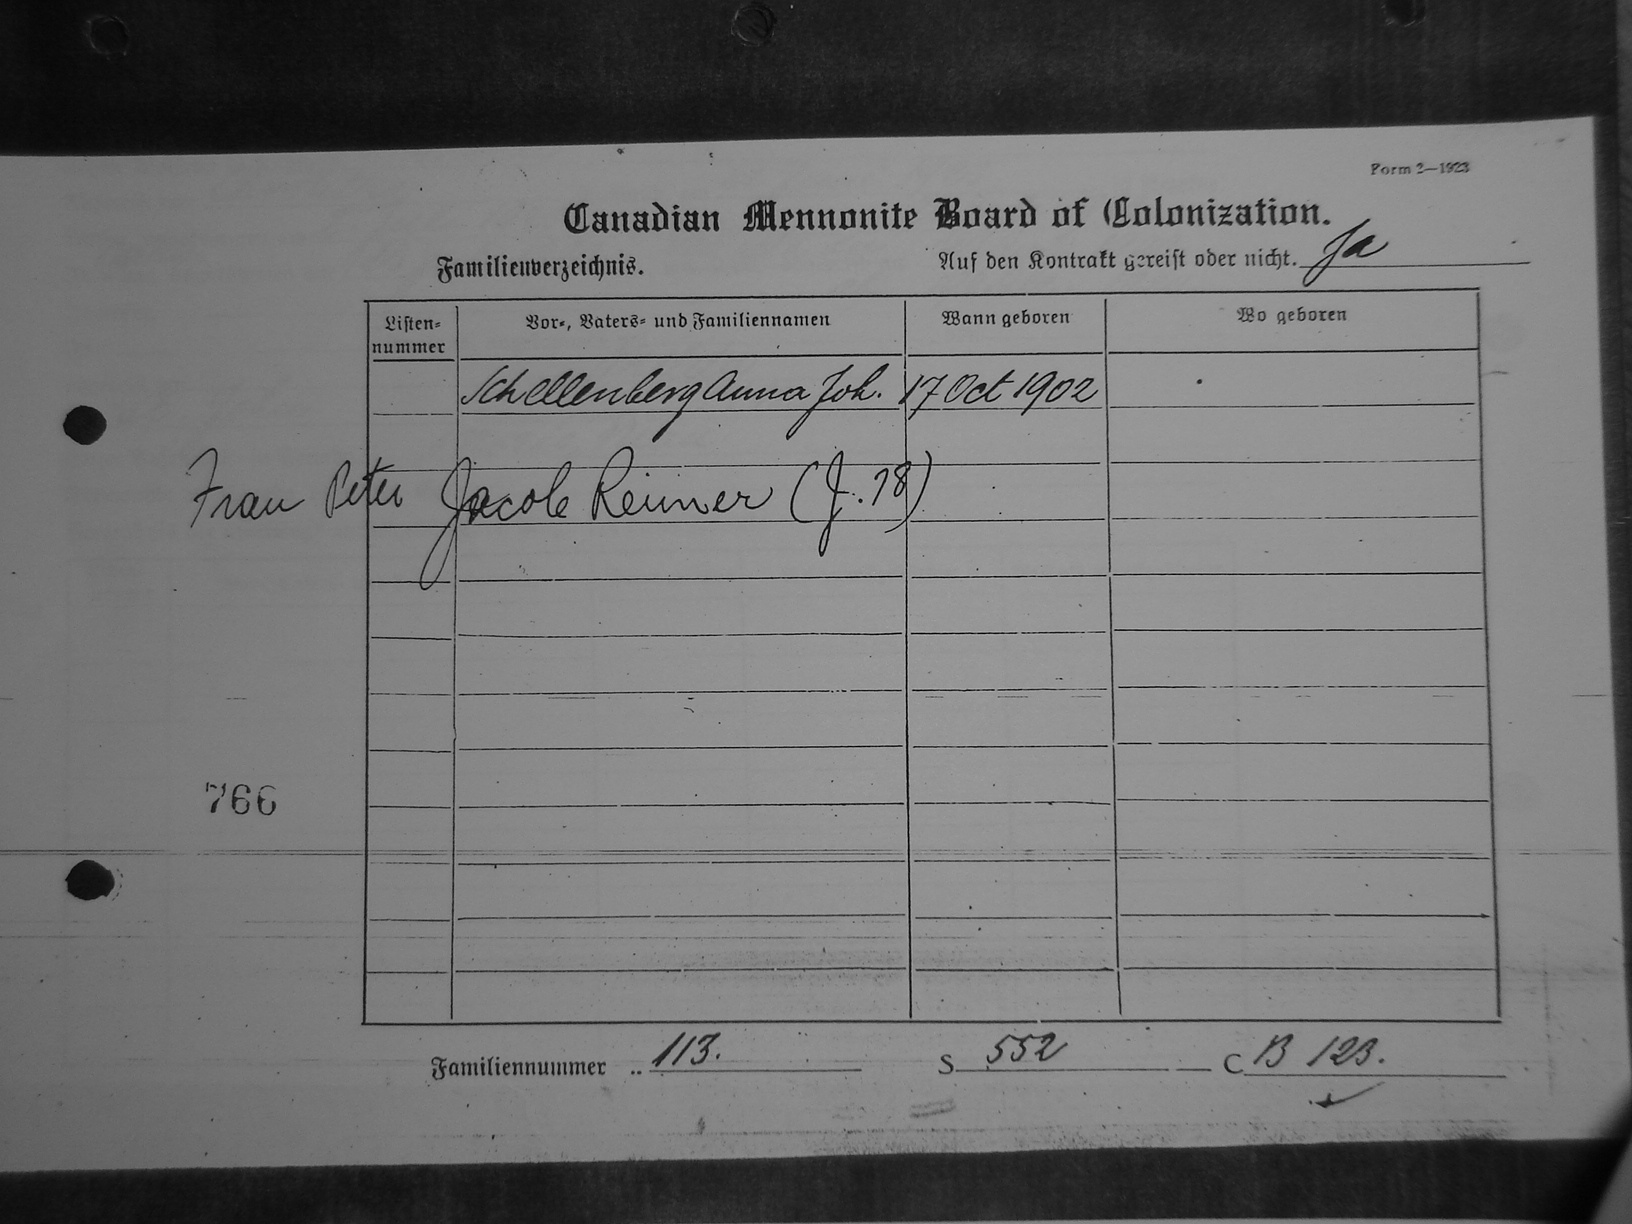 Form 2—1923
Canadian Mennonite Board of Colonization.
Familienverzeichnis.
Auf den Kontrakt gereist oder nicht. Ja
Listen-nummer
Vor-, Vaters- und Familiennamen
Wann geboren
Wo geboren
Schellenberg Anna Joh. 17 Oct 1902
Frau Peter Jacob Reimer (J. 78)
766
Familiennummer .. 113.
S 552
C B 123.